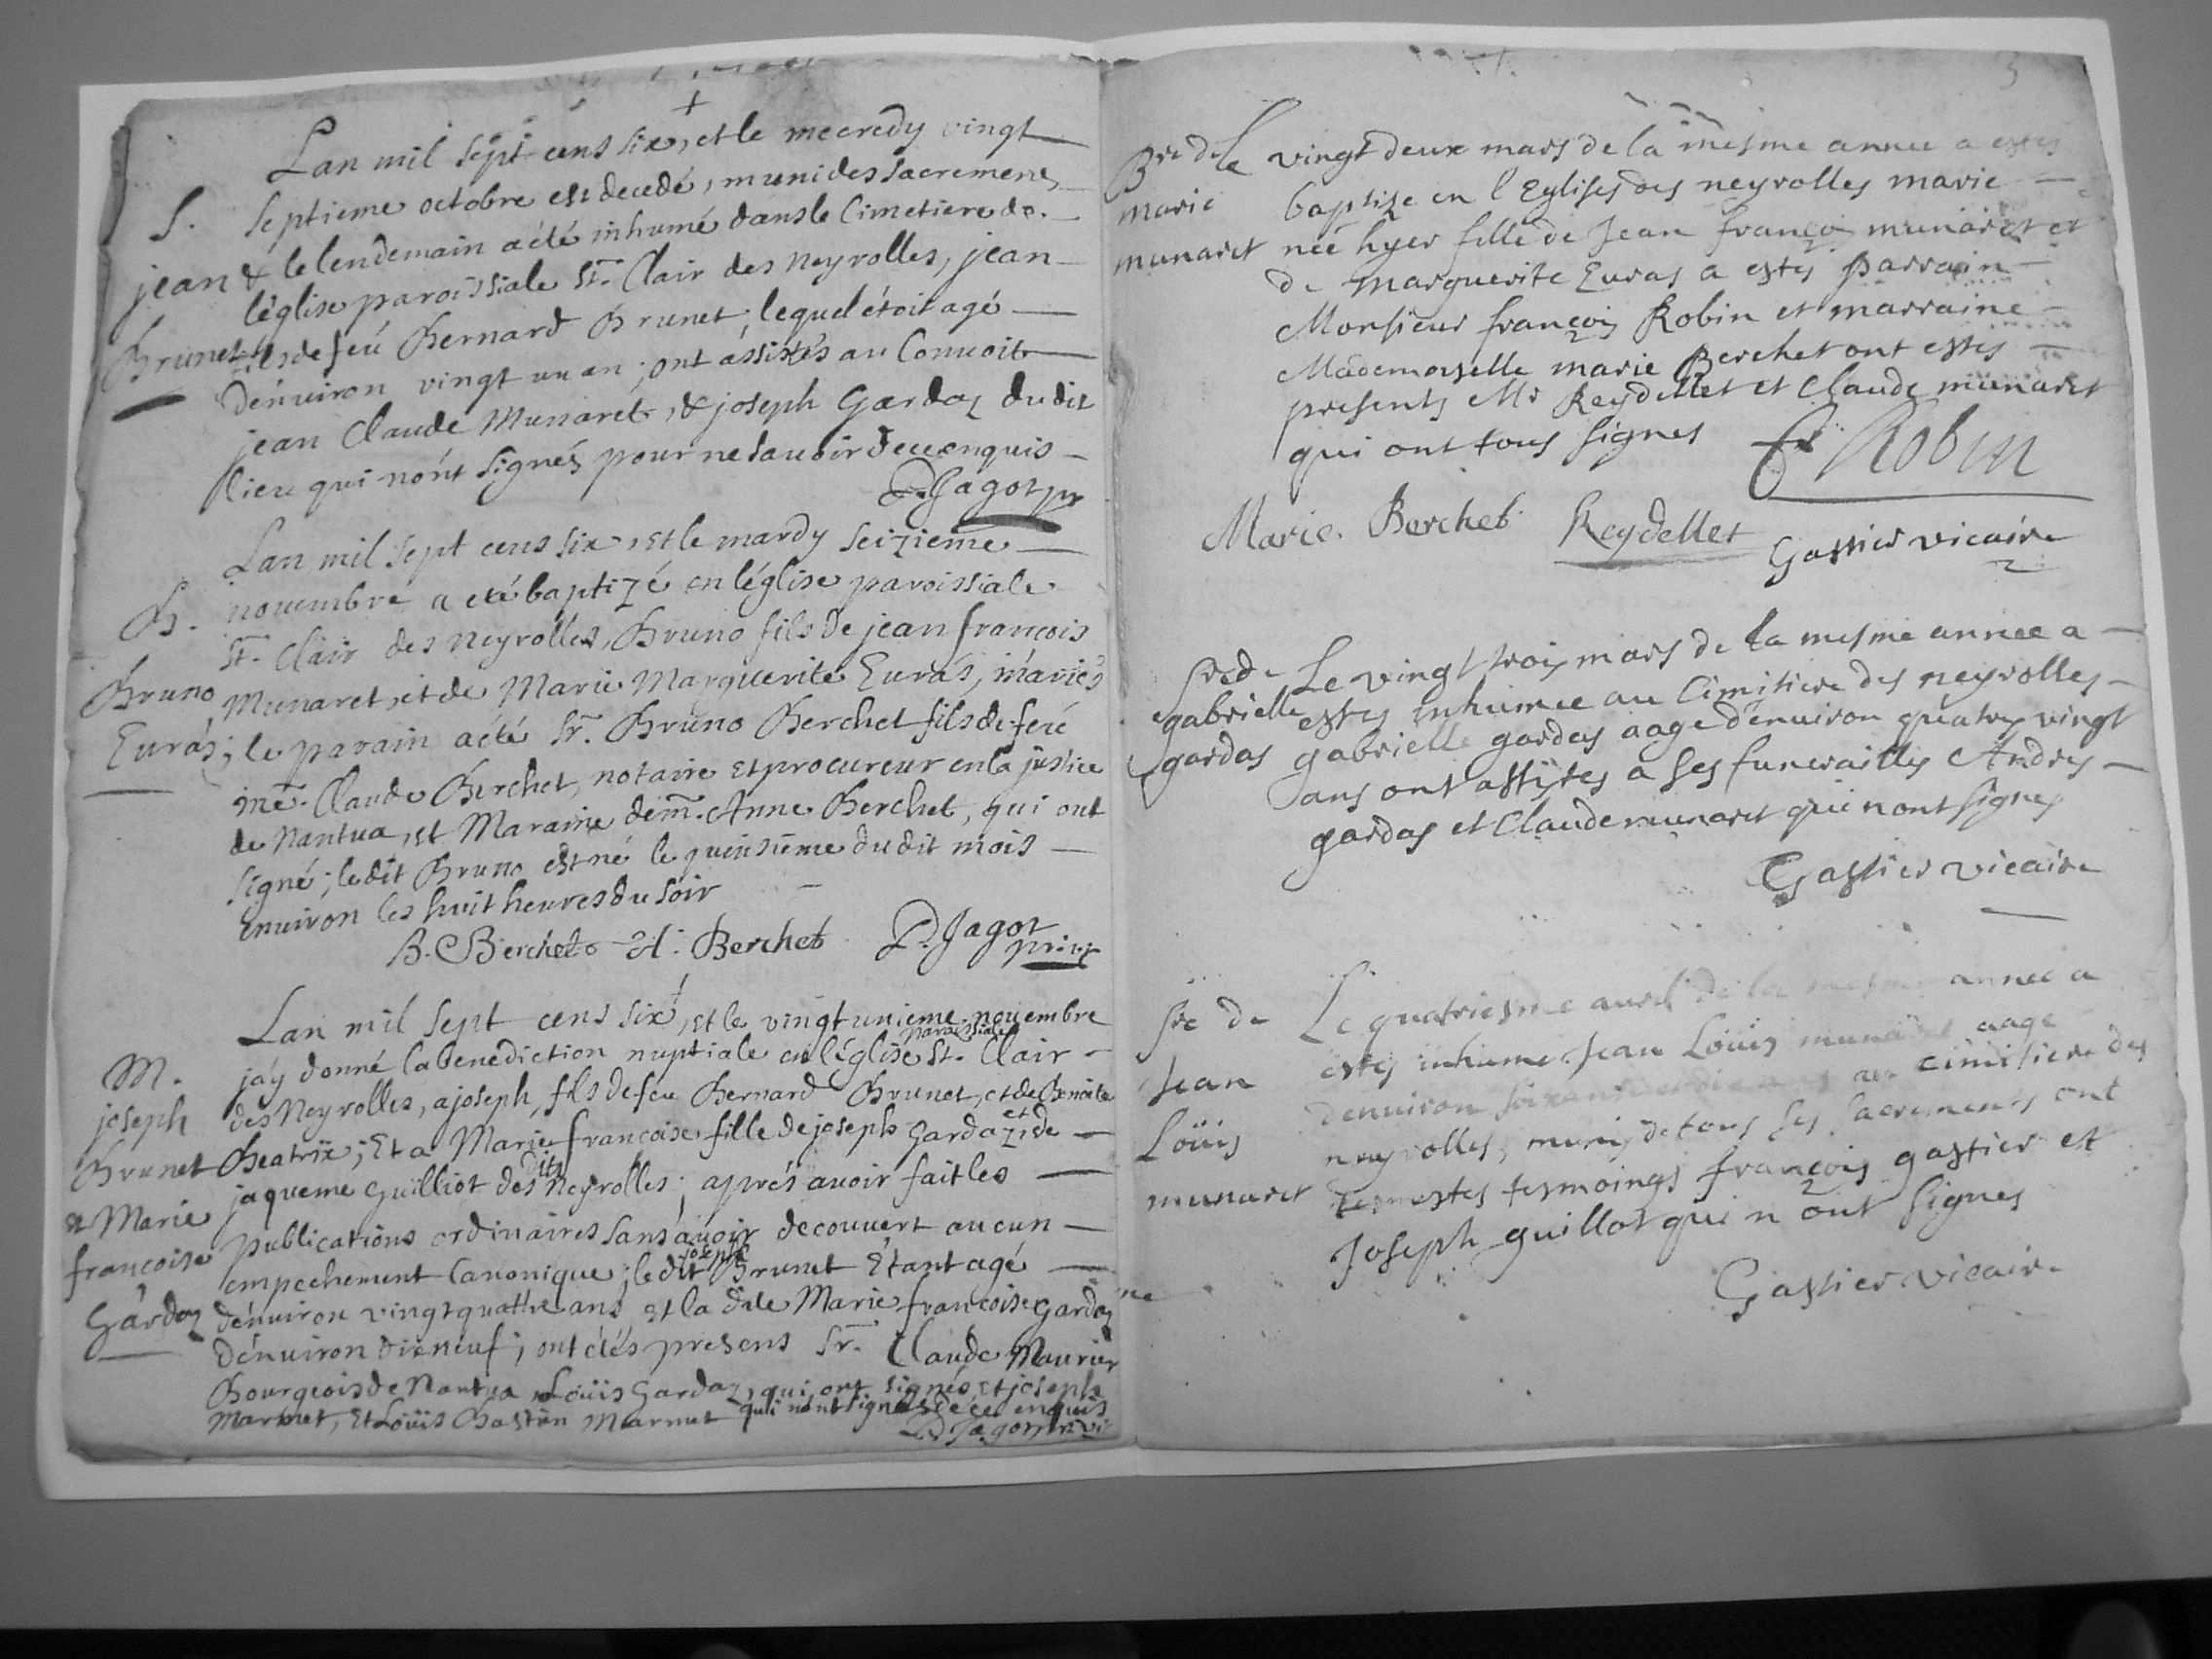 Lan mil sept cens six, et le mecredy vingt
S. septieme octobre est decedé, muni des sacremens,
jean & le lendemain a été inhumé dans le Cimetiere de
léglise paroissiale St. Clair des neyrolles, jean
Brunet fils de feu Bernard Brunet, lequel étoit agé
dénuiron vingt un an; ont assistés au Conuoit
jean Claude Munaret, & joseph Gardaz dudit
lieu qui nónt signés pour ne sauoir de ce enquis
D. Jagot pr
Lan mil sept cens six, et le mardy seizieme
B. nouembre a eté baptizé en léglise paroissiale
St. Clair des neyrolles, Bruno fils de jean françois
Bruno Munaret, et de Marie Marguerite Eurás, mariés
Eurás; le parain a été Sr. Bruno Berchet fils de feu
me. Claude Berchet, notaire et procureur en la justice
de Nantua, et Maraine dem. Anne Berchet, qui ont
signé; ledit Bruno est né le quinsieme dudit mois
enuiron les huit heures du soir
B. Berchet A. Berchet D. Jagot
pr. vi
Lan mil sept cens six, et le vingtunieme nouembre
paroissiale
M. jáy donné la benediction nuptiale en léglise St. Clair
joseph des Neyrolles, a joseph fils de feu Bernard Brunet, et de Benoite
Brunet Beatrix; Et a Marie francoise fille de joseph Gardaz et de
jaqueme Guilliot des dits Neyrolles; aprés auoir fait les
& Marie publications ordinaires sans auoir decouuert aucun
francoise empechement Canonique; ledit joseph Brunet Étant agé
Gardaz dénuiron vingt quattre ans, et la dite Marie francoise Gardaz
dénuiron dix neuf; ont étés presens Sr. Claude Maurier
Bourgeois de Nantua, Loüis Gardaz, qui ont signés, et joseph
Marmet, et Loüis Bastien Marmet qui nont signés de ce enquis
D. Jagot pr vi
3
Bre de Le vingt deux mars de la mesme annee a estes
marie baptize en l Eglises des neyrolles marie
munaret née hyer fille de Jean françois munaret et
de marguerite Euras a estes parrain
Monsieur françois Robin et marraine
Mademoyselle marie Berchet ont estes
presents Mr Reydellet et Claude munaret
qui ont tous signes
Robin
Marie. Berchet Reydellet Gastier vicaire
Sre de Le vingt trois mars de la mesme annee a
gabrielle estes inhumee au Cimitiere des neyrolles
gardas gabrielle gardas aage denuiron quatres vingt
ans ont assistes a ses funerailles Andres
gardas et Claude munaret qui nont signes
Gastier vicaire
Sre de Le quatriesme auril de la mesme annee a
Jean estes inhume Jean Loüis munaret aage
denuiron soixante et dix ans au cimitiere des
Loüis neyrolles, munis de tous ses sacrements ont
munaret estes tesmoings françois gastier et
Joseph guillot qui n ont signes
Gastier vicaire